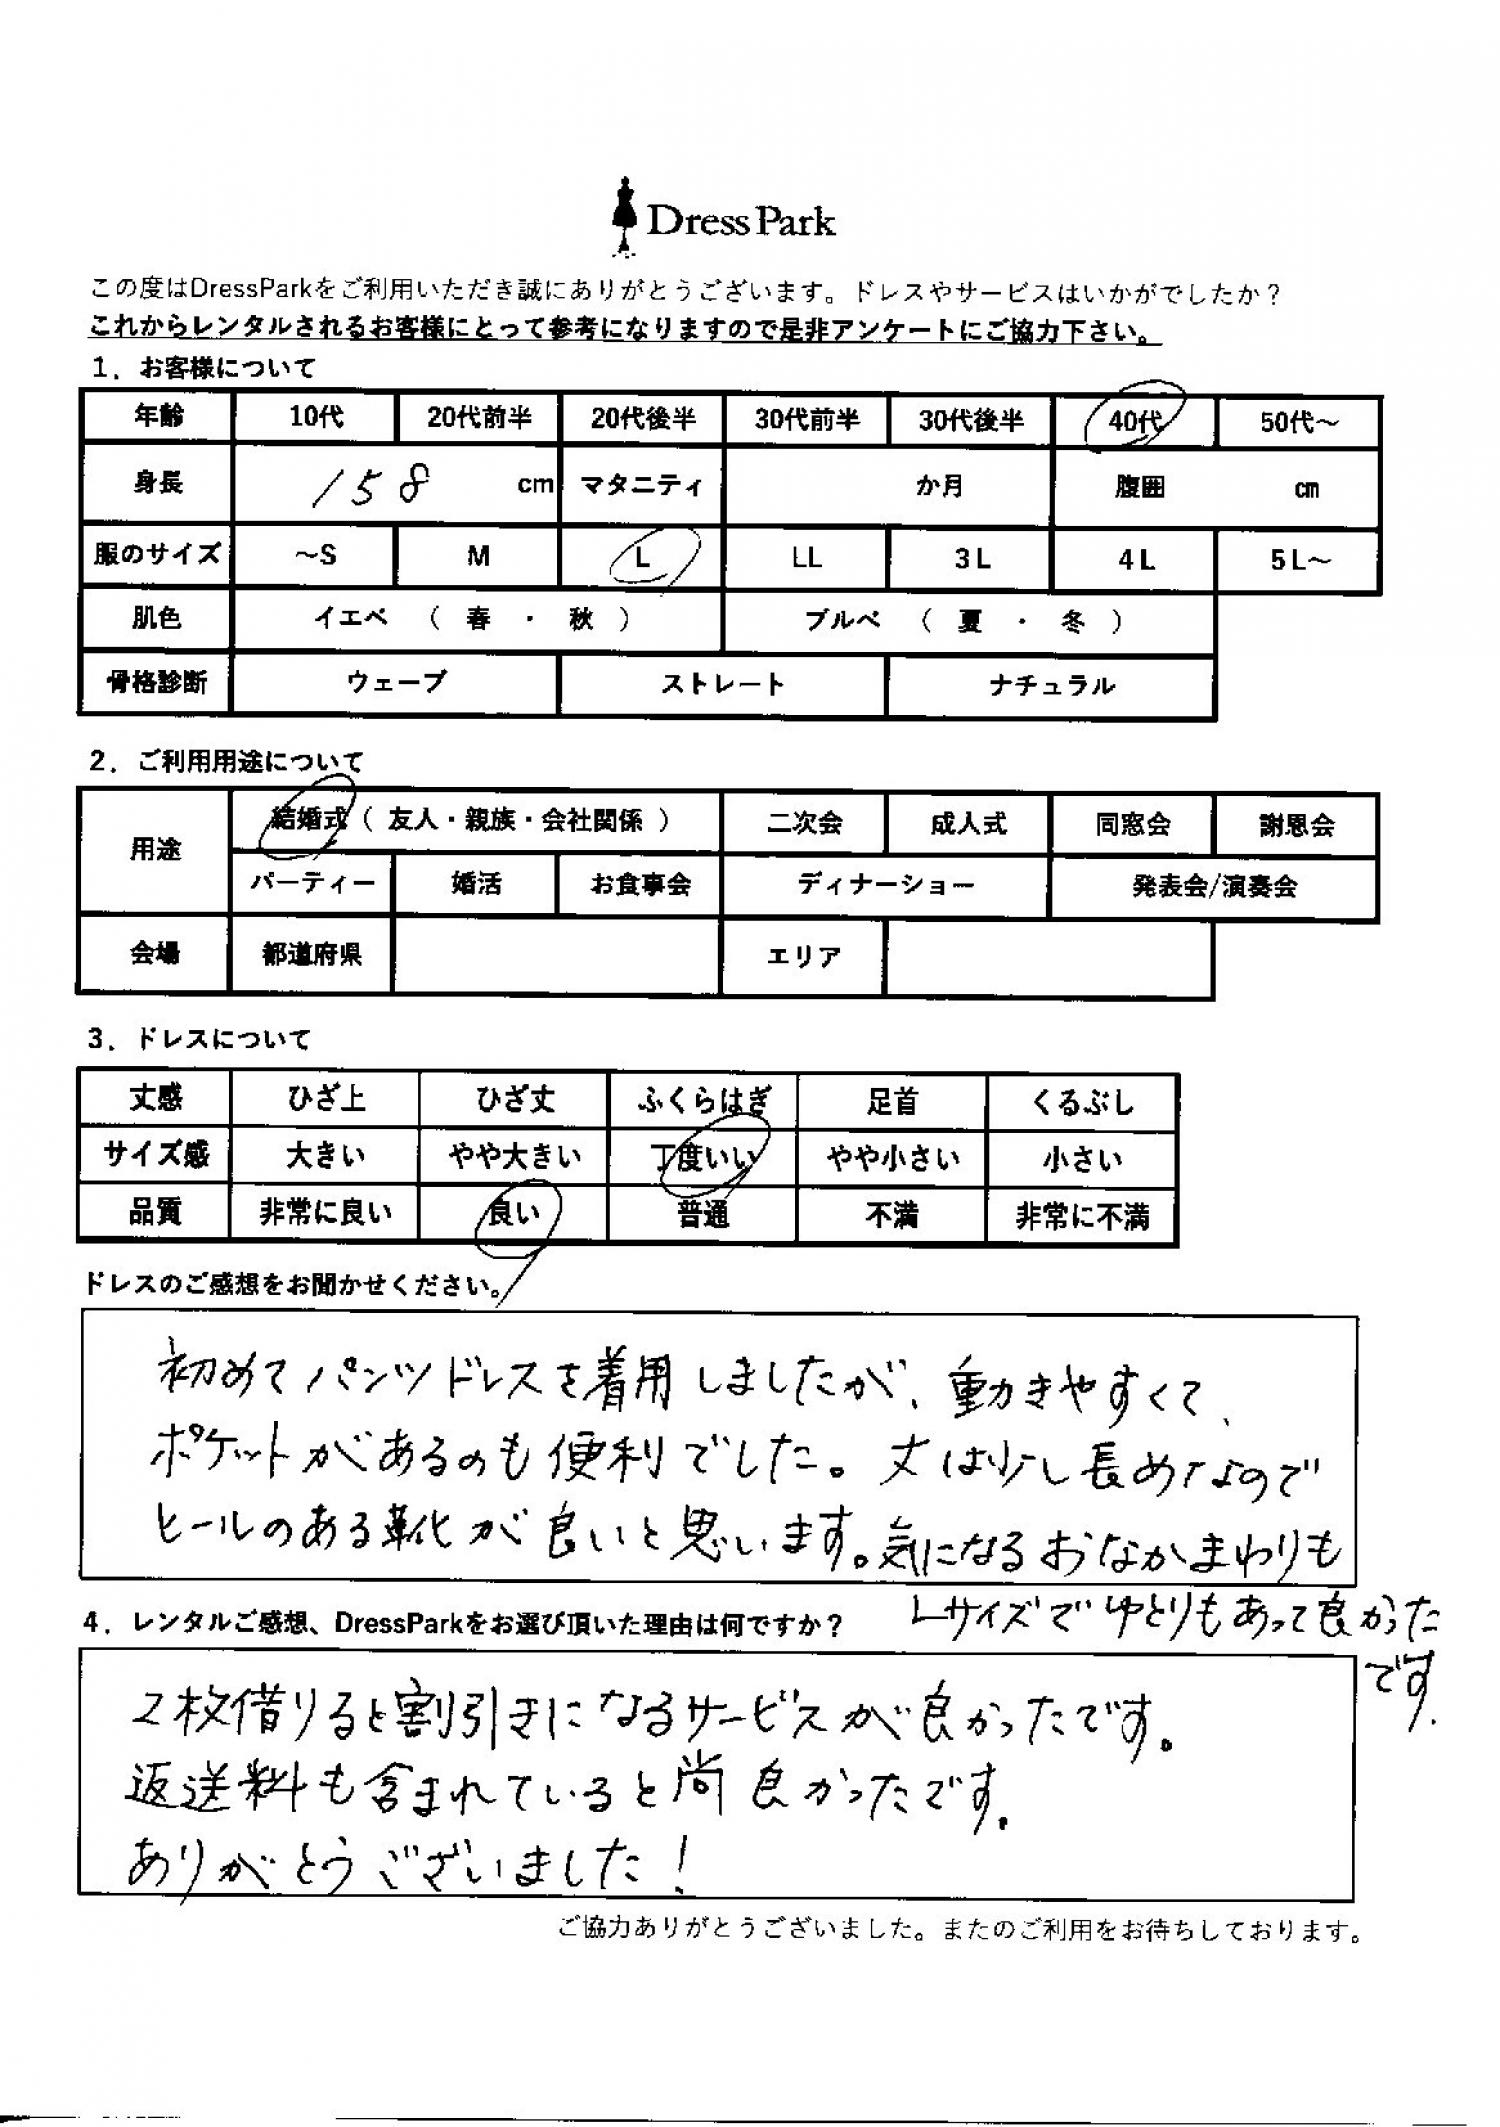 Dress Park
この度はDressParkをご利用いただき誠にありがとうございます。ドレスやサービスはいかがでしたか？
これからレンタルされるお客様にとって参考になりますので是非アンケートにご協力下さい。
1．お客様について
年齢 10代 20代前半 20代後半 30代前半 30代後半 40代 50代～
身長 158 cm マタニティ か月 腹囲 cm
服のサイズ ～S M L LL 3L 4L 5L～
肌色 イエベ （ 春 ・ 秋 ） ブルベ （ 夏 ・ 冬 ）
骨格診断 ウェーブ ストレート ナチュラル
2．ご利用用途について
用途 結婚式（ 友人・親族・会社関係 ） 二次会 成人式 同窓会 謝恩会
パーティー 婚活 お食事会 ディナーショー 発表会/演奏会
会場 都道府県 エリア
3．ドレスについて
丈感 ひざ上 ひざ丈 ふくらはぎ 足首 くるぶし
サイズ感 大きい やや大きい 丁度いい やや小さい 小さい
品質 非常に良い 良い 普通 不満 非常に不満
ドレスのご感想をお聞かせください。
初めてパンツドレスを着用しましたが、動きやすくて、
ポケットがあるのも便利でした。丈は少し長めなので
ヒールのある靴が良いと思います。気になるおなかまわりも
Lサイズでゆとりもあって良かった
です.
4．レンタルご感想、DressParkをお選び頂いた理由は何ですか？
2枚借りると割引きになるサービスが良かったです。
返送料も含まれていると尚良かったです。
ありがとうございました！
ご協力ありがとうございました。またのご利用をお待ちしております。